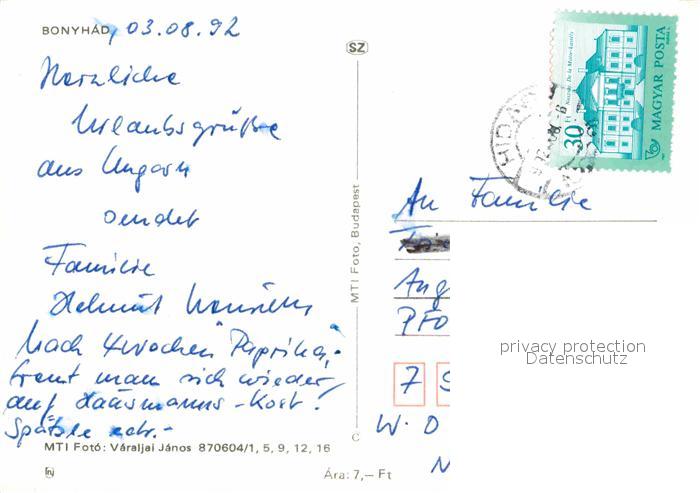 BONYHÁD, 03.08.92
SZ
Herzliche
Urlaubsgrüße
aus Ungarn
sendet
Familie
Helmut
Nach 4 Wochen "Paprika"
freut man sich wieder
auf Hausmanns-Kost!
Spätzle
MTI Fotó: Váraljai János 870604/1, 5, 9, 12, 16
Ára: 7,– Ft
MTI Foto, Budapest
30 Ft
MAGYAR POSTA
An Familie
Ang
PFO
privacy protection
Datenschutz
7
W. D
N